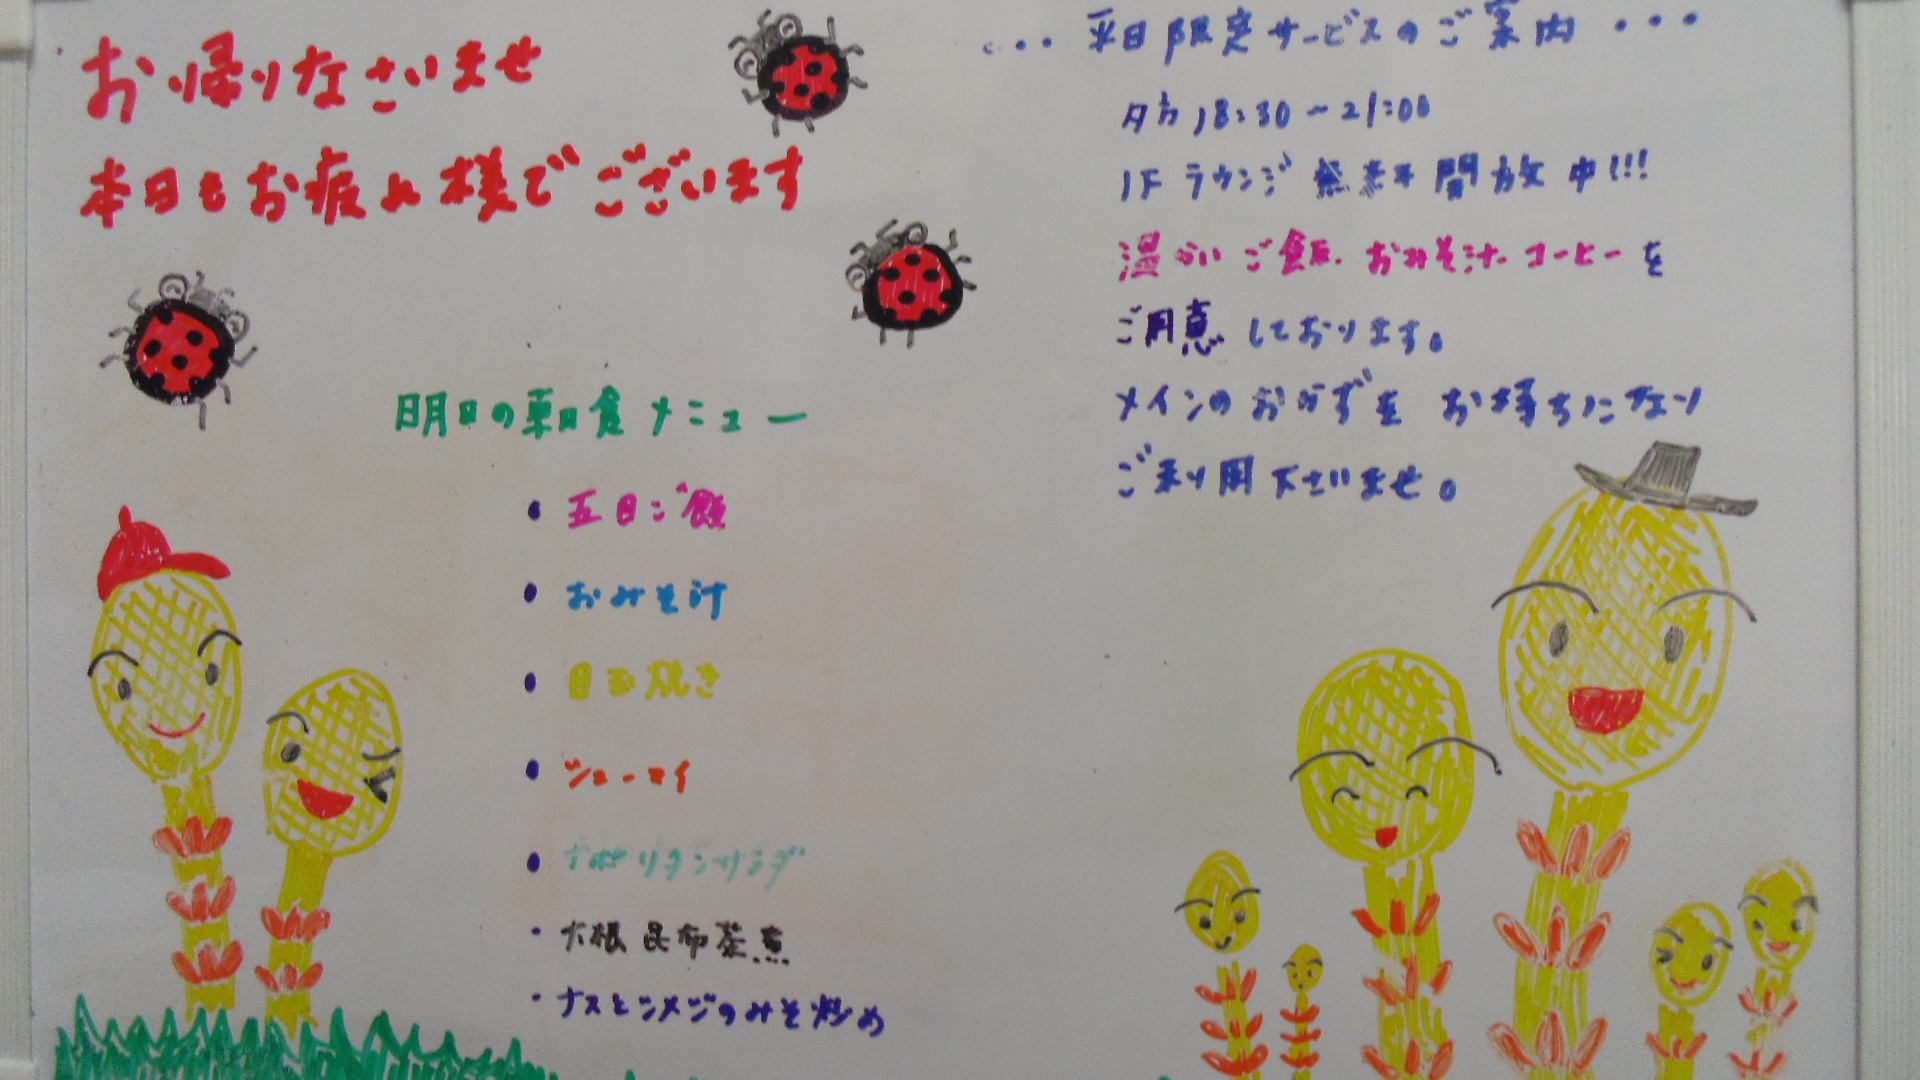 お帰りなさいませ
本日もお疲れ様でございます
明日の朝食メニュー
・五目ご飯
・おみそ汁
・目玉焼き
・シューマイ
・ナポリタンサラダ
・大根昆布茶煮
・ナスとシメジのみそ炒め
・・・平日限定サービスのご案内・・・
夕方18:30~21:00
1Fラウンジ無料開放中!!!
温かいご飯、おみそ汁、コーヒーを
ご用意しております。
メインのおかずをお持ちになり
ご利用下さいませ。